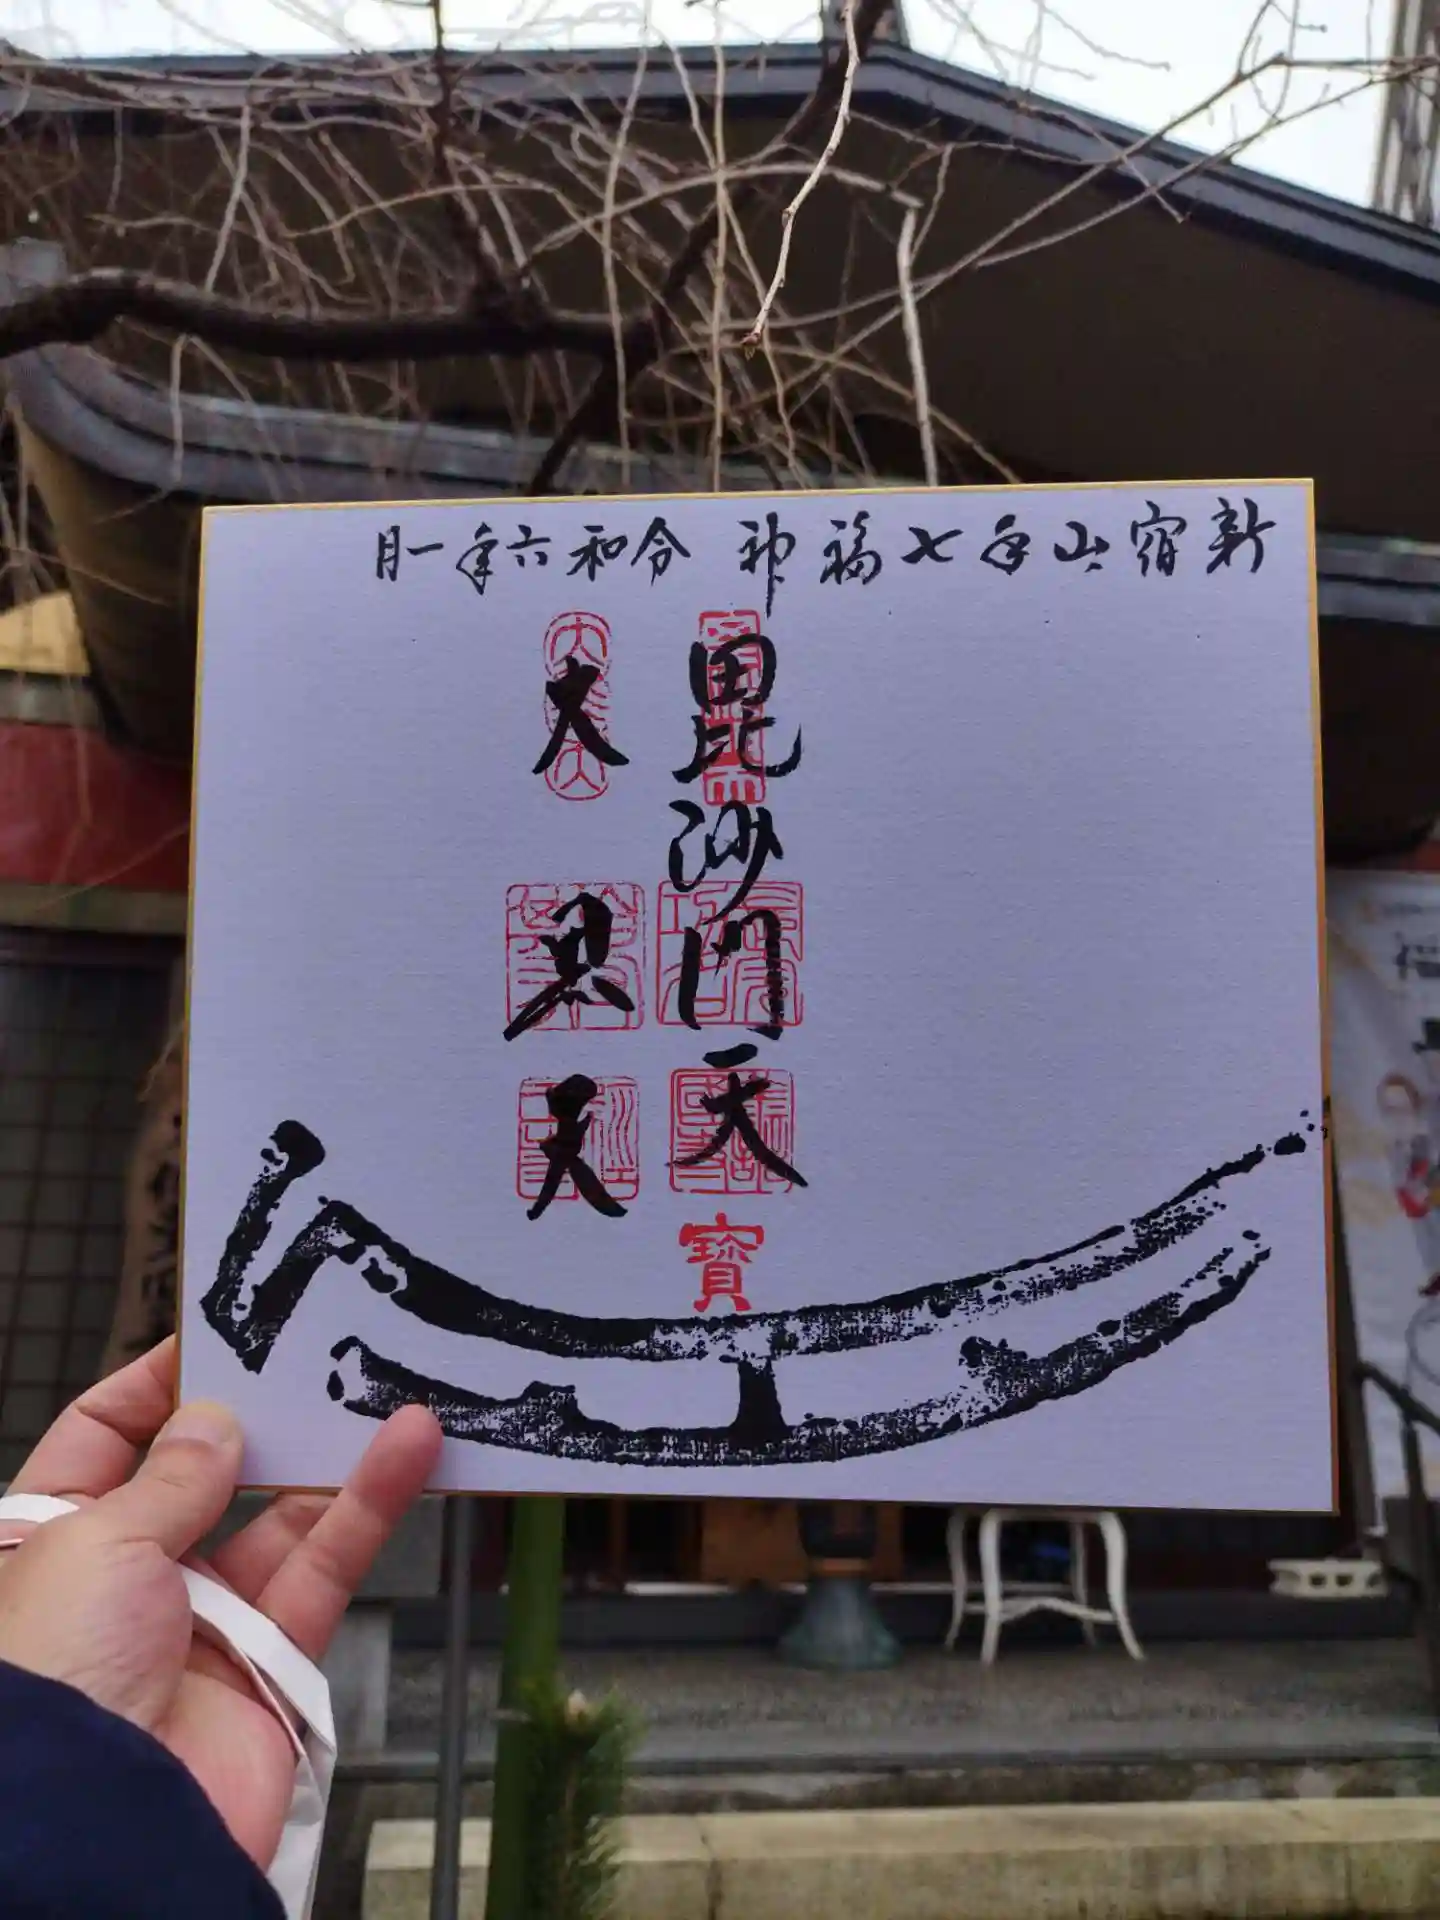 新宿山手七福神 令和六年一月
毘沙門天
寶
大黒天